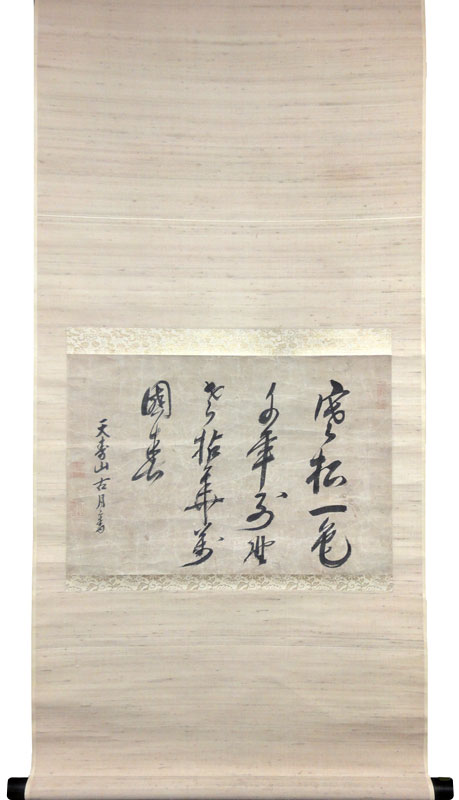 寒松一色
千年別野
老拈華萬
國春
天壽山古月書